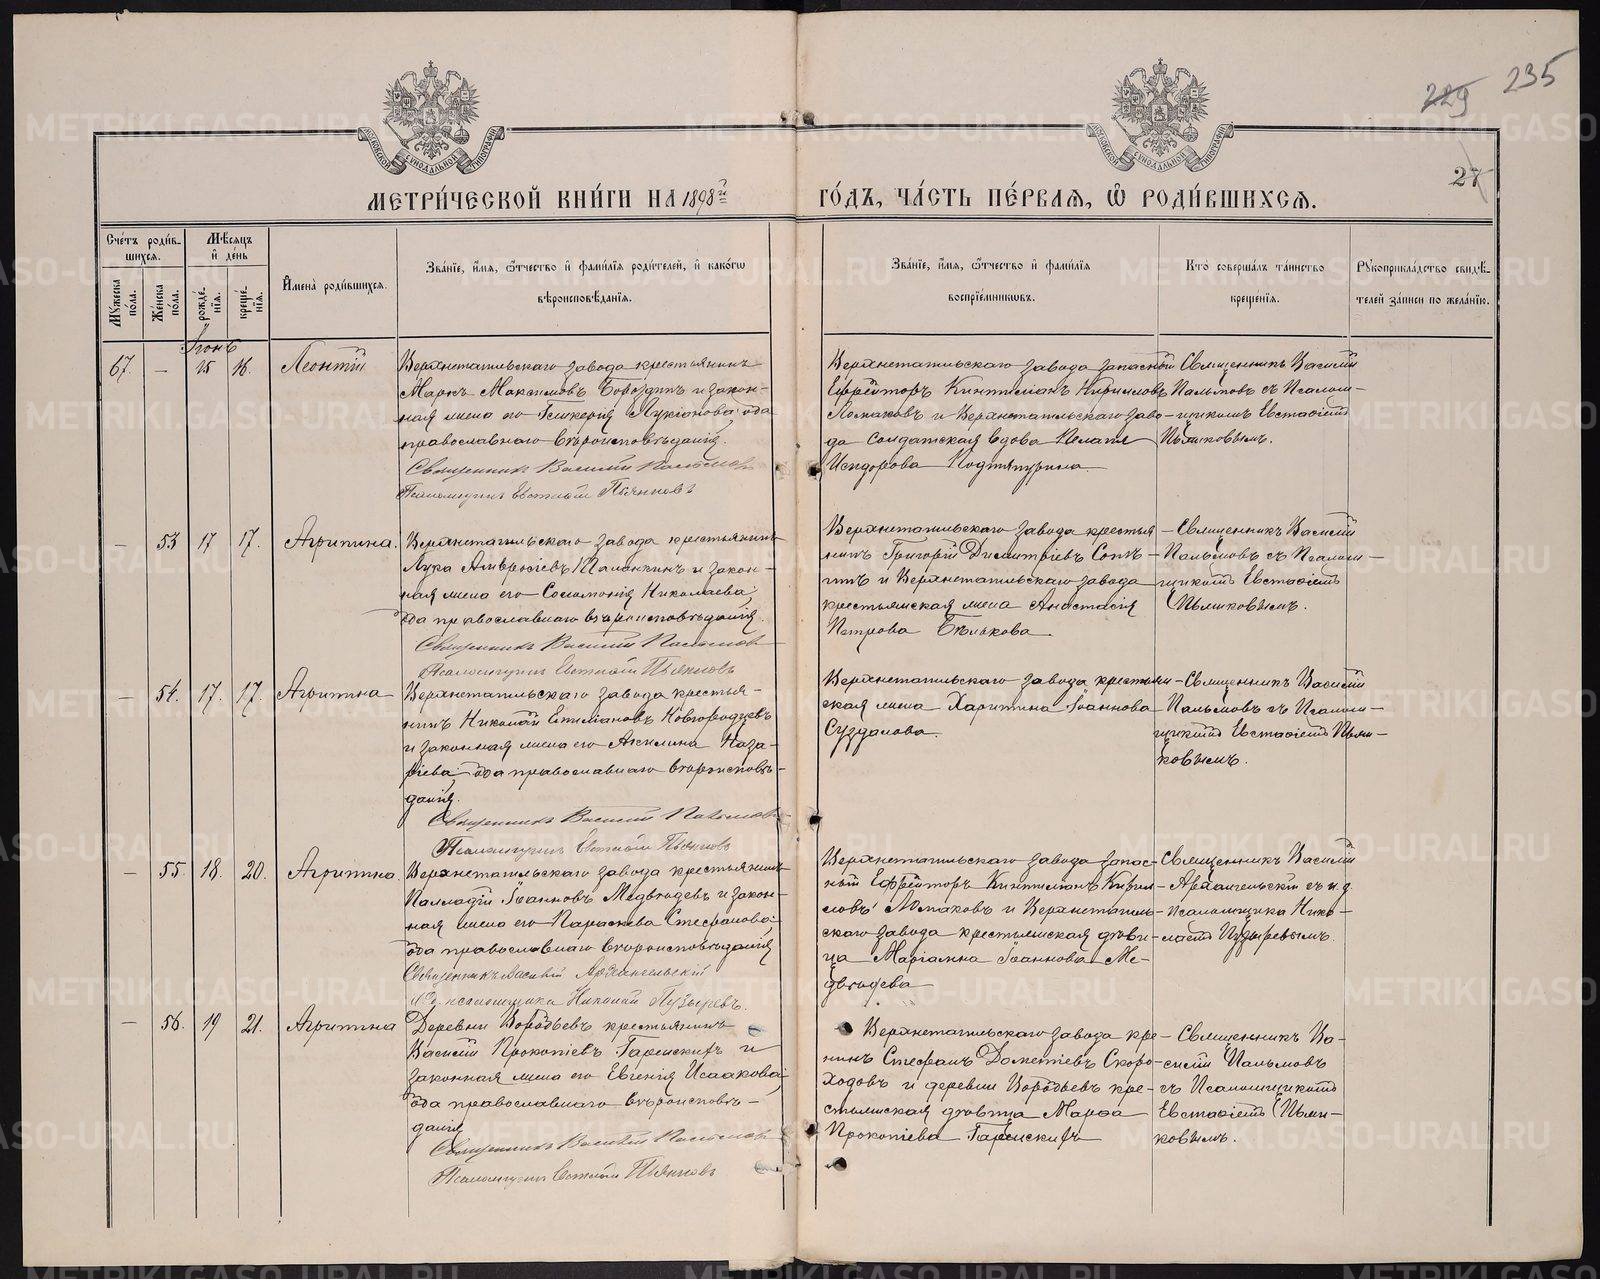 229 235
27
МОСКОВСКОЙ СѴНОДАЛЬНОЙ ТИПОГРАФІИ
МОСКОВСКОЙ СѴНОДАЛЬНОЙ ТИПОГРАФІИ
МЕТРИ́ЧЕСКОЙ КНИ́ГИ НА 1898й ГО́ДЪ, ЧА́СТЬ ПЕ́РВАѦ, Ѡ҆ РОДИ́ВШИХСѦ.
Сче́тъ роди́в-
шихсѧ.
Мꙋ́жеска по́ла.
Же́нска по́ла.
Мѣ́сѧцъ и҆ де́нь
рожде́-нїѧ.
креще́-нїѧ.
И҆мена̀ роди́вшихсѧ.
Зва́нїе, и҆́мѧ, ѻ҆́тчество и҆ фами́лїѧ роди́телей, и҆ како́гѡ
вѣроисповѣ́данїѧ.
Зва́нїе, и҆́мѧ, ѻ҆́тчество и҆ фами́лїѧ
воспрїе́мникѡвъ.
Кто̀ соверша́лъ та́инство
креще́нїѧ.
Рꙋкоприкла́дство свидѣ́-
телей за́писи по жела́нїю.
Іюнь
67. — 15 16. Леонтій
Верхнетагильскаго завода крестьянинъ
Маркъ Максимовъ Бороздинъ и закон-
ная жена его Гликерія Лукіанова, оба
православнаго вѣроисповѣданія.
Священникъ Василій Пальмовъ
Псаломщикъ Евстафій Пьянковъ
Верхнетагильскаго завода запасный
Ефрейторъ Киптиліанъ Кириловъ
Ломаковъ и Верхнетагильскаго заво-
да солдатская вдова Пелагія
Исидорова Подтяпурина
Священникъ Василій
Пальмовъ съ Псалом-
щикомъ Евстафіемъ
Пьянковымъ.
— 53 17 17. Агрипина.
Верхнетагильскаго завода крестьянинъ
Лука Амвросіевъ Палаткинъ и закон-
ная жена его Соломонія Николаева,
оба православнаго вѣроисповѣданія.
Священникъ Василій Пальмовъ
Псаломщикъ Евстафій Пьянковъ
Верхнетагильскаго завода крестья-
нинъ Григорій Димитріевъ
и Верхнетагильскаго завода
крестьянская жена Анастасія
Петрова Бѣлькова.
Священникъ Василій
Пальмовъ съ Псалом-
щикомъ Евстафіемъ
Пьянковымъ.
— 54. 17. 17. Агрипина
Верхнетагильскаго завода крестья-
нинъ Николай Емиліановъ Новгородцевъ
и законная жена его Акилина Наза-
ріева, оба православнаго вѣроисповѣ-
данія.
Священникъ Василій Пальмовъ
Псаломщикъ Евстафій Пьянковъ
Верхнетагильскаго завода крестьян-
ская жена Харитина Іоаннова
Суздалова.
Священникъ Василій
Пальмовъ съ Псалом-
щикомъ Евстафіемъ Пьян-
ковымъ.
— 55. 18. 20. Агрипина.
Верхнетагильскаго завода крестьянинъ
Палладій Іоанновъ Медвѣдевъ и закон-
ная жена его Параскева Стефанова,
оба православнаго вѣроисповѣданія
Священникъ Василій Архангельскій
И.д. псаломщика Николай Пузыревъ.
Верхнетагильскаго завода запас-
ный Ефрейторъ Киптиліанъ Кирил-
ловъ Ломаковъ и Верхнетагиль-
скаго завода крестьянская дѣви-
ца Маріамна Іоаннова Ме-
двѣдева
Священникъ Василій
Архангельскій съ и.д.
псаломщика Нико-
лаемъ Пузыревымъ.
— 56. 19 21. Агрипина
Деревни Воробьевъ крестьянинъ
Василій Прокопіевъ Гаренскихъ и
законная жена его Евгенія Исаакова,
оба православнаго вѣроисповѣ-
данія
Священникъ Василій Пальмовъ
Псаломщикъ Евстафій Пьянковъ
Верхнетагильскаго завода кре-
нинъ Стефанъ Дометіевъ Скоро-
ходовъ и деревни Воробьевъ кре-
стьянская дѣвица Марѳа
Прокопіева Гаренскихъ
Священникъ Ва-
силій Пальмовъ
съ Псаломщикомъ
Евстафіемъ Пьян-
ковымъ.
METRIKI.GASO-URAL.RU